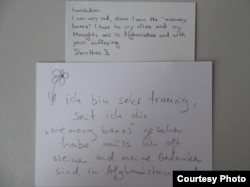 translation:
I am very sad, since I saw the "memory
boxes" I have to cry often and my
thoughts are in Afghanistan and with
your suffering.
Dorothea B.
ich bin sehr traurig,
seit ich die
„memory boxes" gesehen
habe muss ich oft
weinen und meine Gedanken
sind in Afghanistan
Courtesy Photo